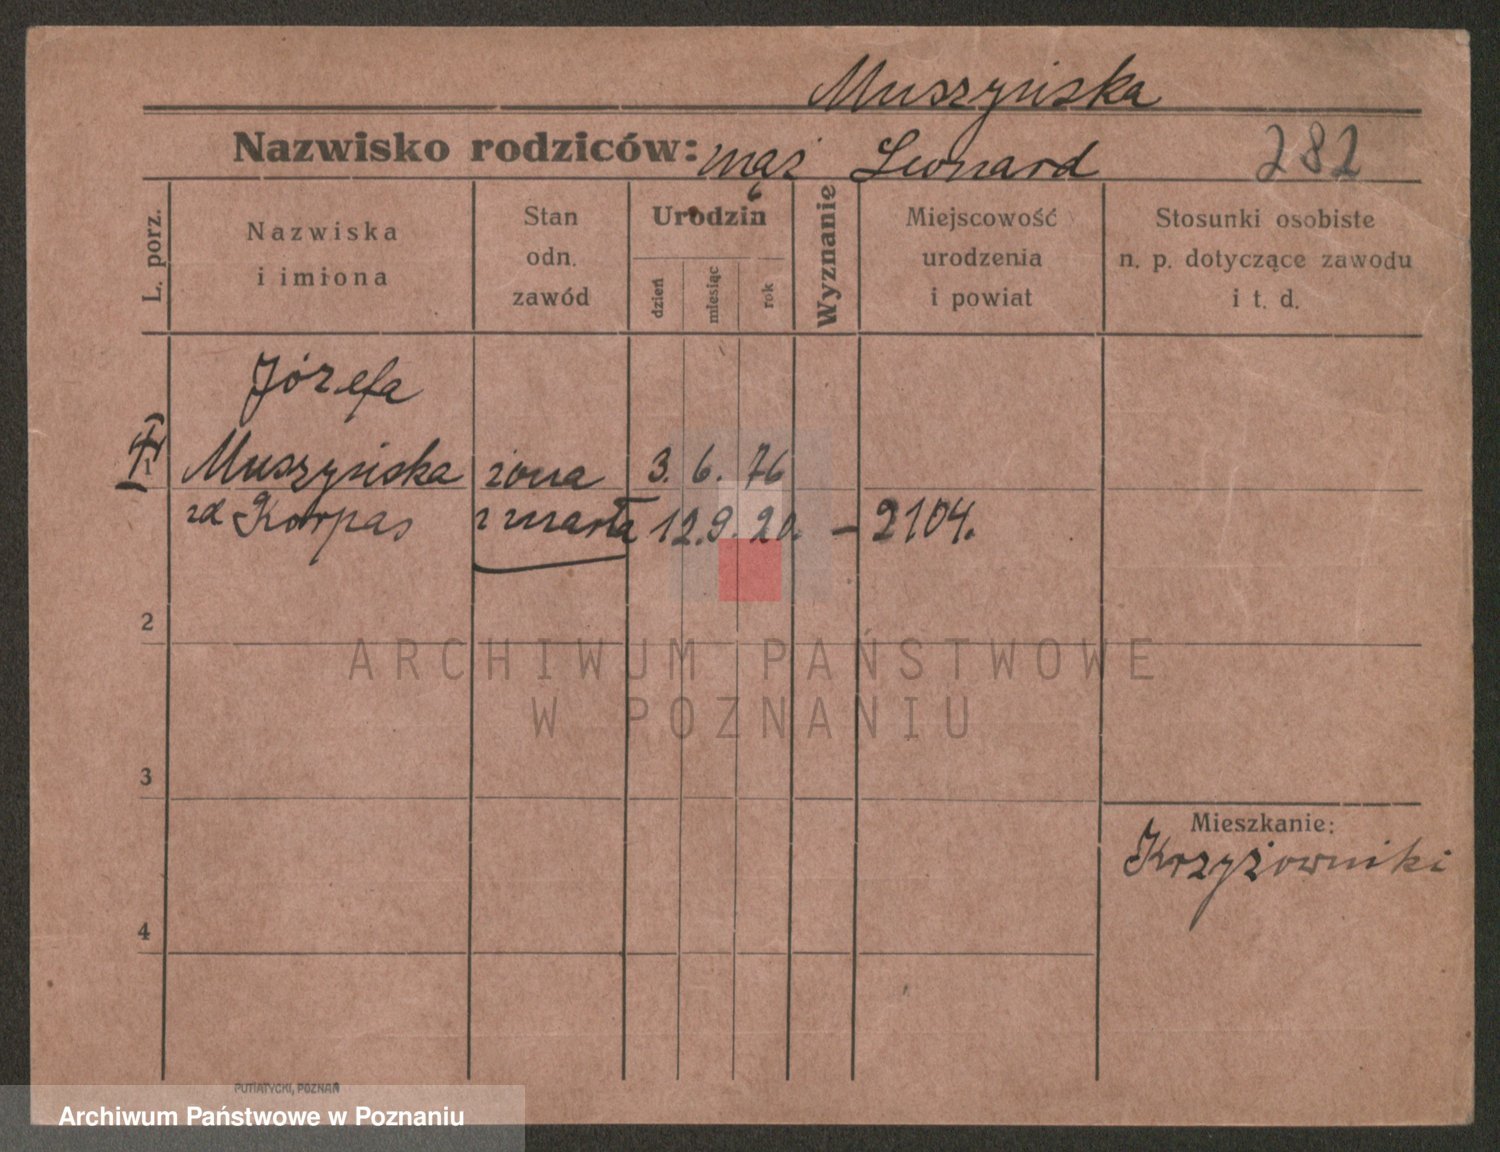 Muszyńska
Nazwisko rodziców: mąż Leonard 282
L. porz.
Nazwiska i imiona
Stan odn. zawód
Urodzin
dzień
miesiąc
rok
Wyznanie
Miejscowość urodzenia i powiat
Stosunki osobiste n. p. dotyczące zawodu i t. d.
Józefa
1 Muszyńska żona 3. 6. 76
zd Korpas zmarła 12. 9. 20. – 2104.
2
ARCHIWUM PAŃSTWOWE
W POZNANIU
3
Mieszkanie:
Krzyżowniki
4
PUTIATYCKI, POZNAŃ
Archiwum Państwowe w Poznaniu